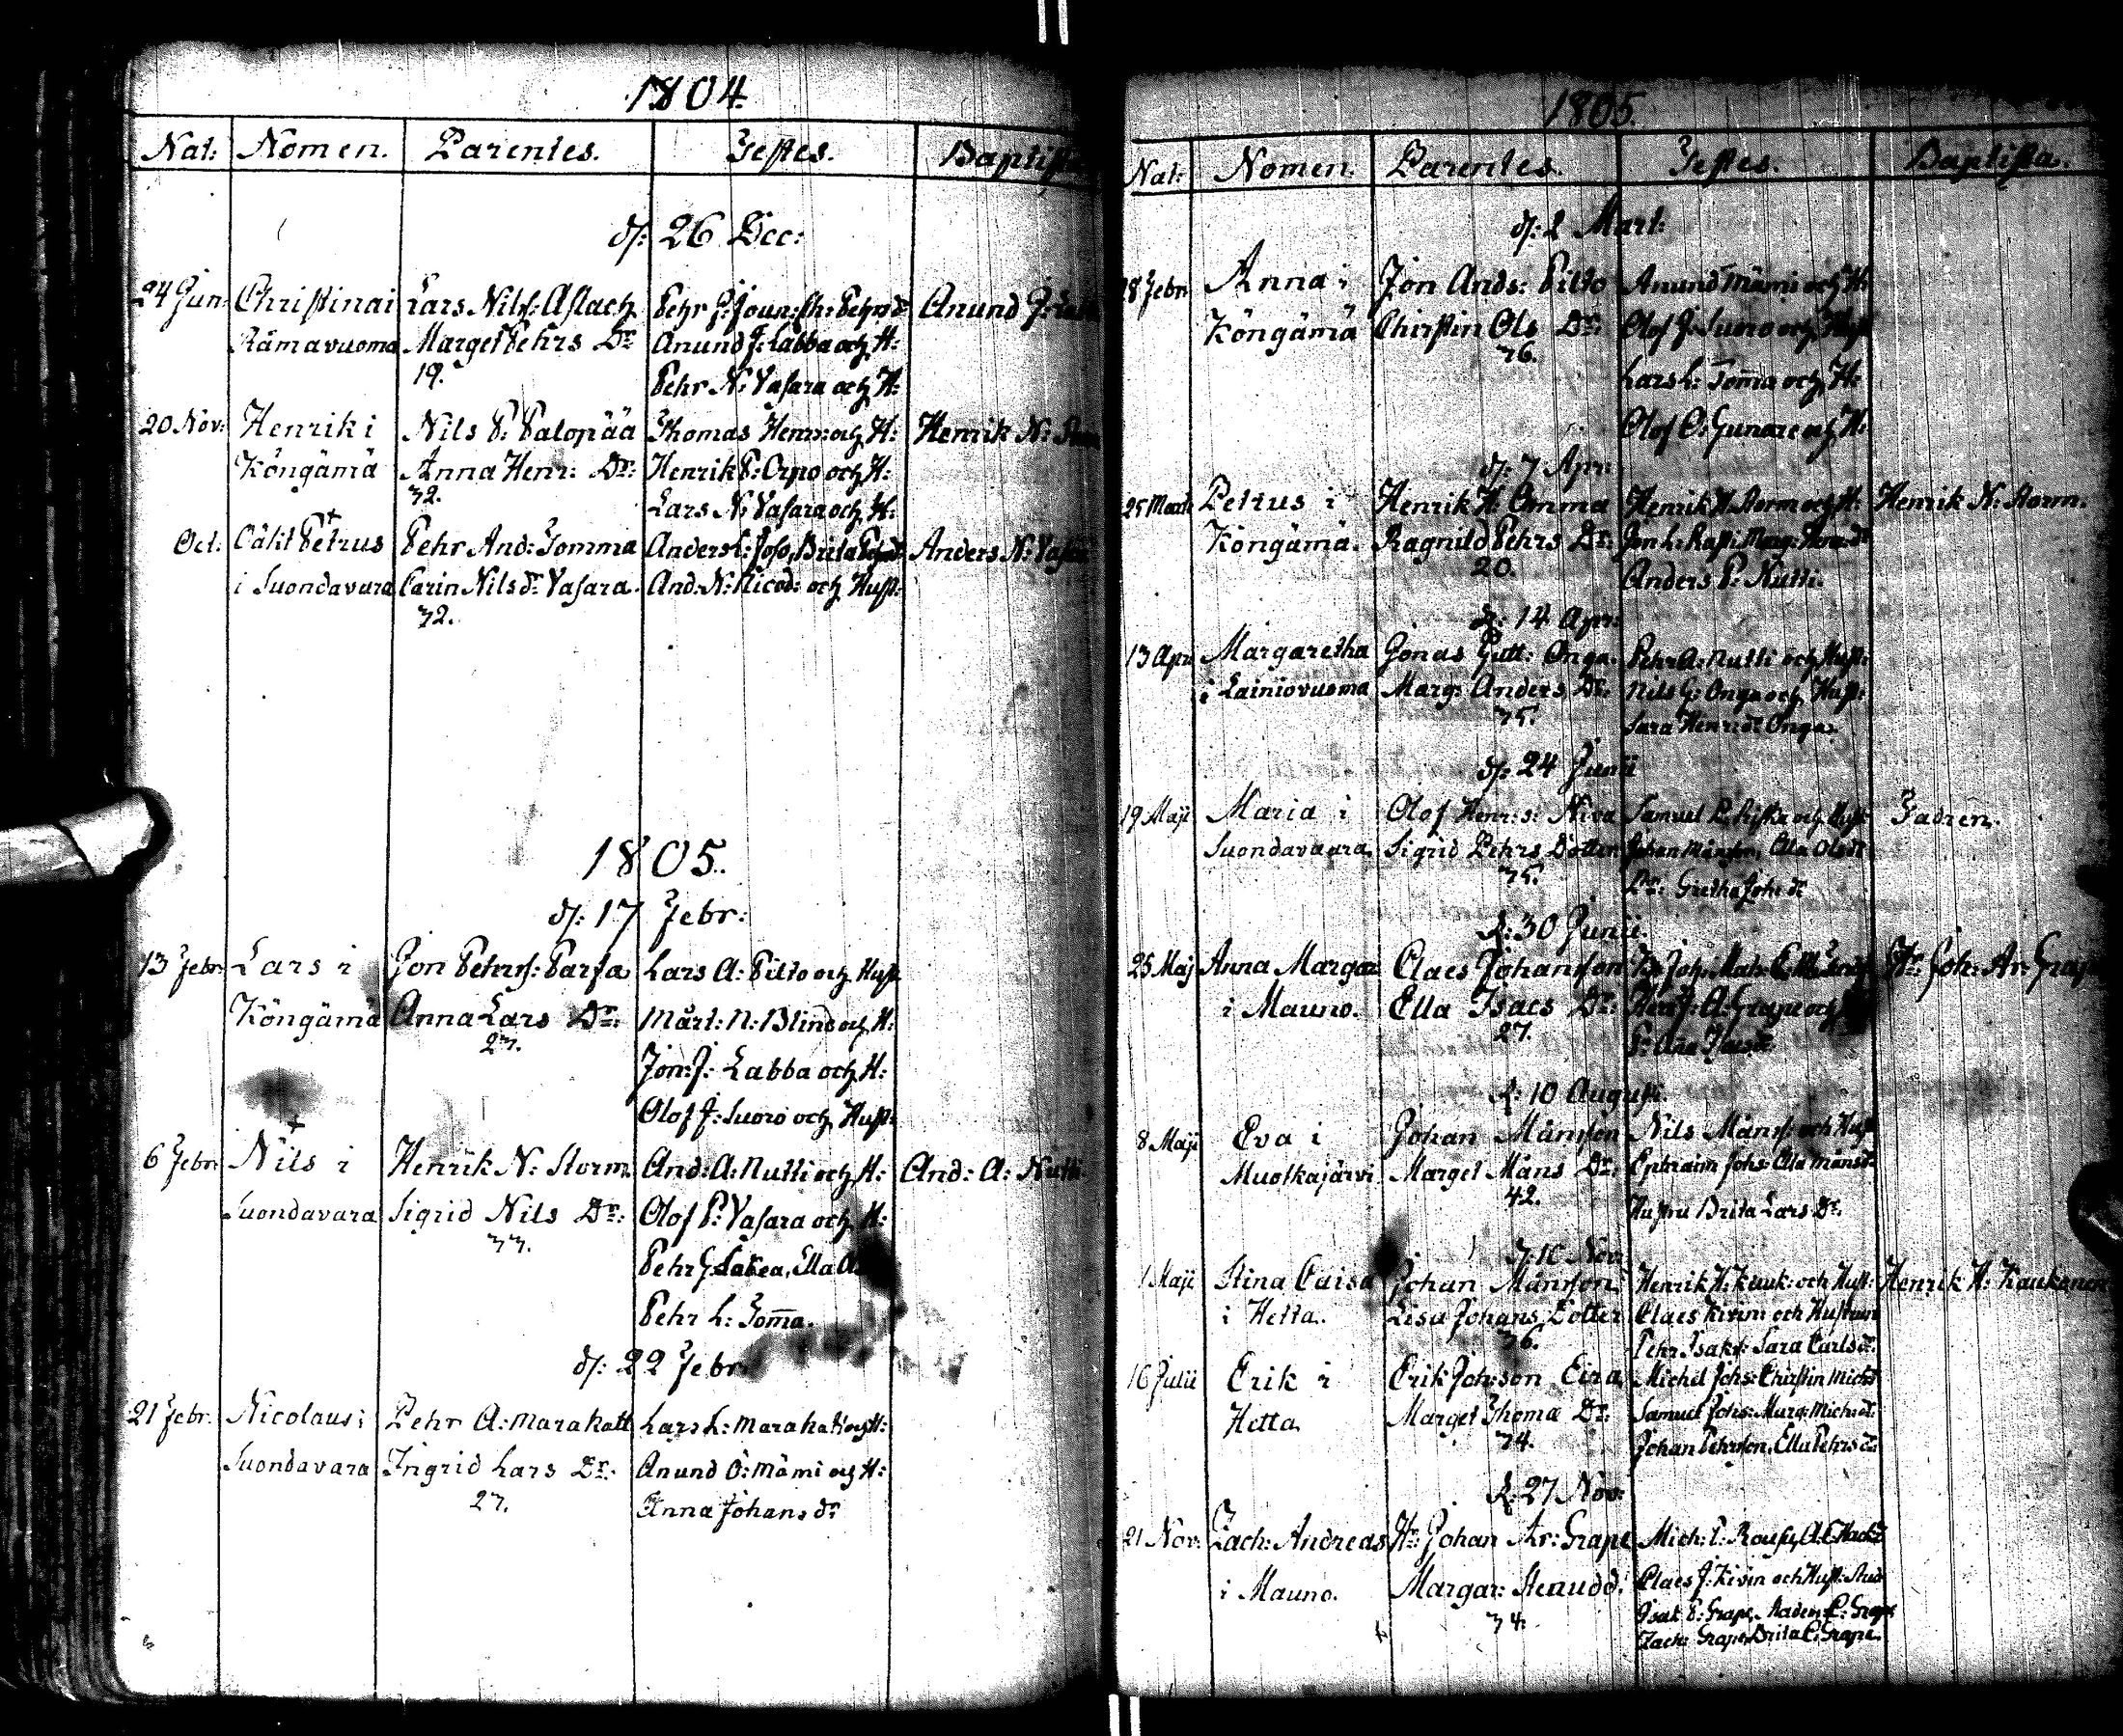 1804
Nat: Nomen. Parentes. Testes. Baptista
d: 26 Dec:
24 Jun: Christina i Lars Nils: Aslach Pehr J: Joun: Anund J:
Rämavuoma Marget Pehrs Dr: Anund J: Labba och H:
19. Pehr N: Vasara och H:
20 Nov: Henrik i Nils P: Palopää Thomas Henr: och H: Henrik N:
Köngämä Anna Henr: Dr: Henrik P: Orpo och H:
32. Lars N: Vasara och H:
Oct: Oäkt Petrus Pehr And: Tomma Anders L: Joso, Brita Anders N: Vasara
i Suondavara Carin Nils dr Vasara. And: N: Nicod: och Hust:
32.
1805.
d: 17 Febr:
13 Febr: Lars i Jon Pehrs: Parfa Lars A: Pilto och Hust
Köngämä Anna Lars Dr: Mårt: N: Blind och H:
23. Jon: J: Labba och H:
Olof J: Suoro och Hust:
6 Febr: Nils i Henrik N: Storm And: A: Nutti och H: And: A: Nutti
Suondavara Sigrid Nils Dr: Olof P: Vasara och H:
33. Pehr G: Labea, Ella
Pehr L: Tom̄a.
d: 22 Febr:
21 Febr: Nicolaus i Pehr A: Marakatt Lars L: Marakatt och H:
Suondavara Ingrid Lars Dr: Anund O: Mämi och H:
27. Anna Johans dr
1805.
Nat: Nomen. Parentes. Testes. Baptista.
d: 2 Mart:
18 Febr: Anna i Jon Ands: Pilto Anund Mämi och H:
Köngämä Chirstin Ols Dr: Olof J: Suoro och Hust
36. Lars L: Tom̄a och H:
Olof O: Gunare och H:
d: 7 Apr:
25 Mart: Petrus i Henrik H: Omma Henrik N. Storm och H: Henrik N: Storm.
Köngämä. Ragnild Pehrs Dr: Jon L: Rasti
20. Anders P: Nutti.
d: 14 Apr:
13 Apr: Margaretha Jonas Gutt: Onga. Pehr A: Nutti och Hust:
i Lainiovuoma Marg: Anders Dr: Nils G: Onga och Hust:
35. Sara Henr: dr Onga.
d: 24 Junii
19 Maji Maria i Olof Henr: s: Niva Samuel och Hust Fadren.
Suondavaara. Sigrid Pehrs Dotter Johan Månson, Ella Ols dr
35. Gretha Joh: dr
d: 30 Junii.
25 Maj Anna Margar: Claes Johanson Hr: Joh: Ar: Grape
i Mauno. Ella Isacs Dr: A: Grape och
27.
d: 10 Augusti.
8 Maji Eva i Johan Månson Nils Månss: och Hust
Muotkajärvi Marget Måns Dr: Ephraim Johs: Ella Måns dr
42. Hustru Brita Lars Dr.
d: 10 Nov:
1 Maji Stina Caisa Johan Månson Henrik H: Kauk: och Hust: Henrik H: Kaukanen
i Hetta. Lisa Johans Dotter Claes Kivini och Hustrun
36. Pehr Isaks: Sara Carls dr
16 Julii Erik i Erik Johson Eira Michel Johs: Chirstin Mich: dr
Hetta. Marget Thoma Dr: Samuel Johs: Marg: Mich: dr
34. Johan Pehrson, Ella Pehrs dr
d: 27 Nov:
21 Nov: Zach: Andreas Hr: Johan Ar: Grape Mich: P:
i Mauno. Margar: Stenudd. Claes J: Kivin och Hust: Stud
34. Isak E: Grape, Maden C: Grape
Zach: Grape, Brita C: Grape.